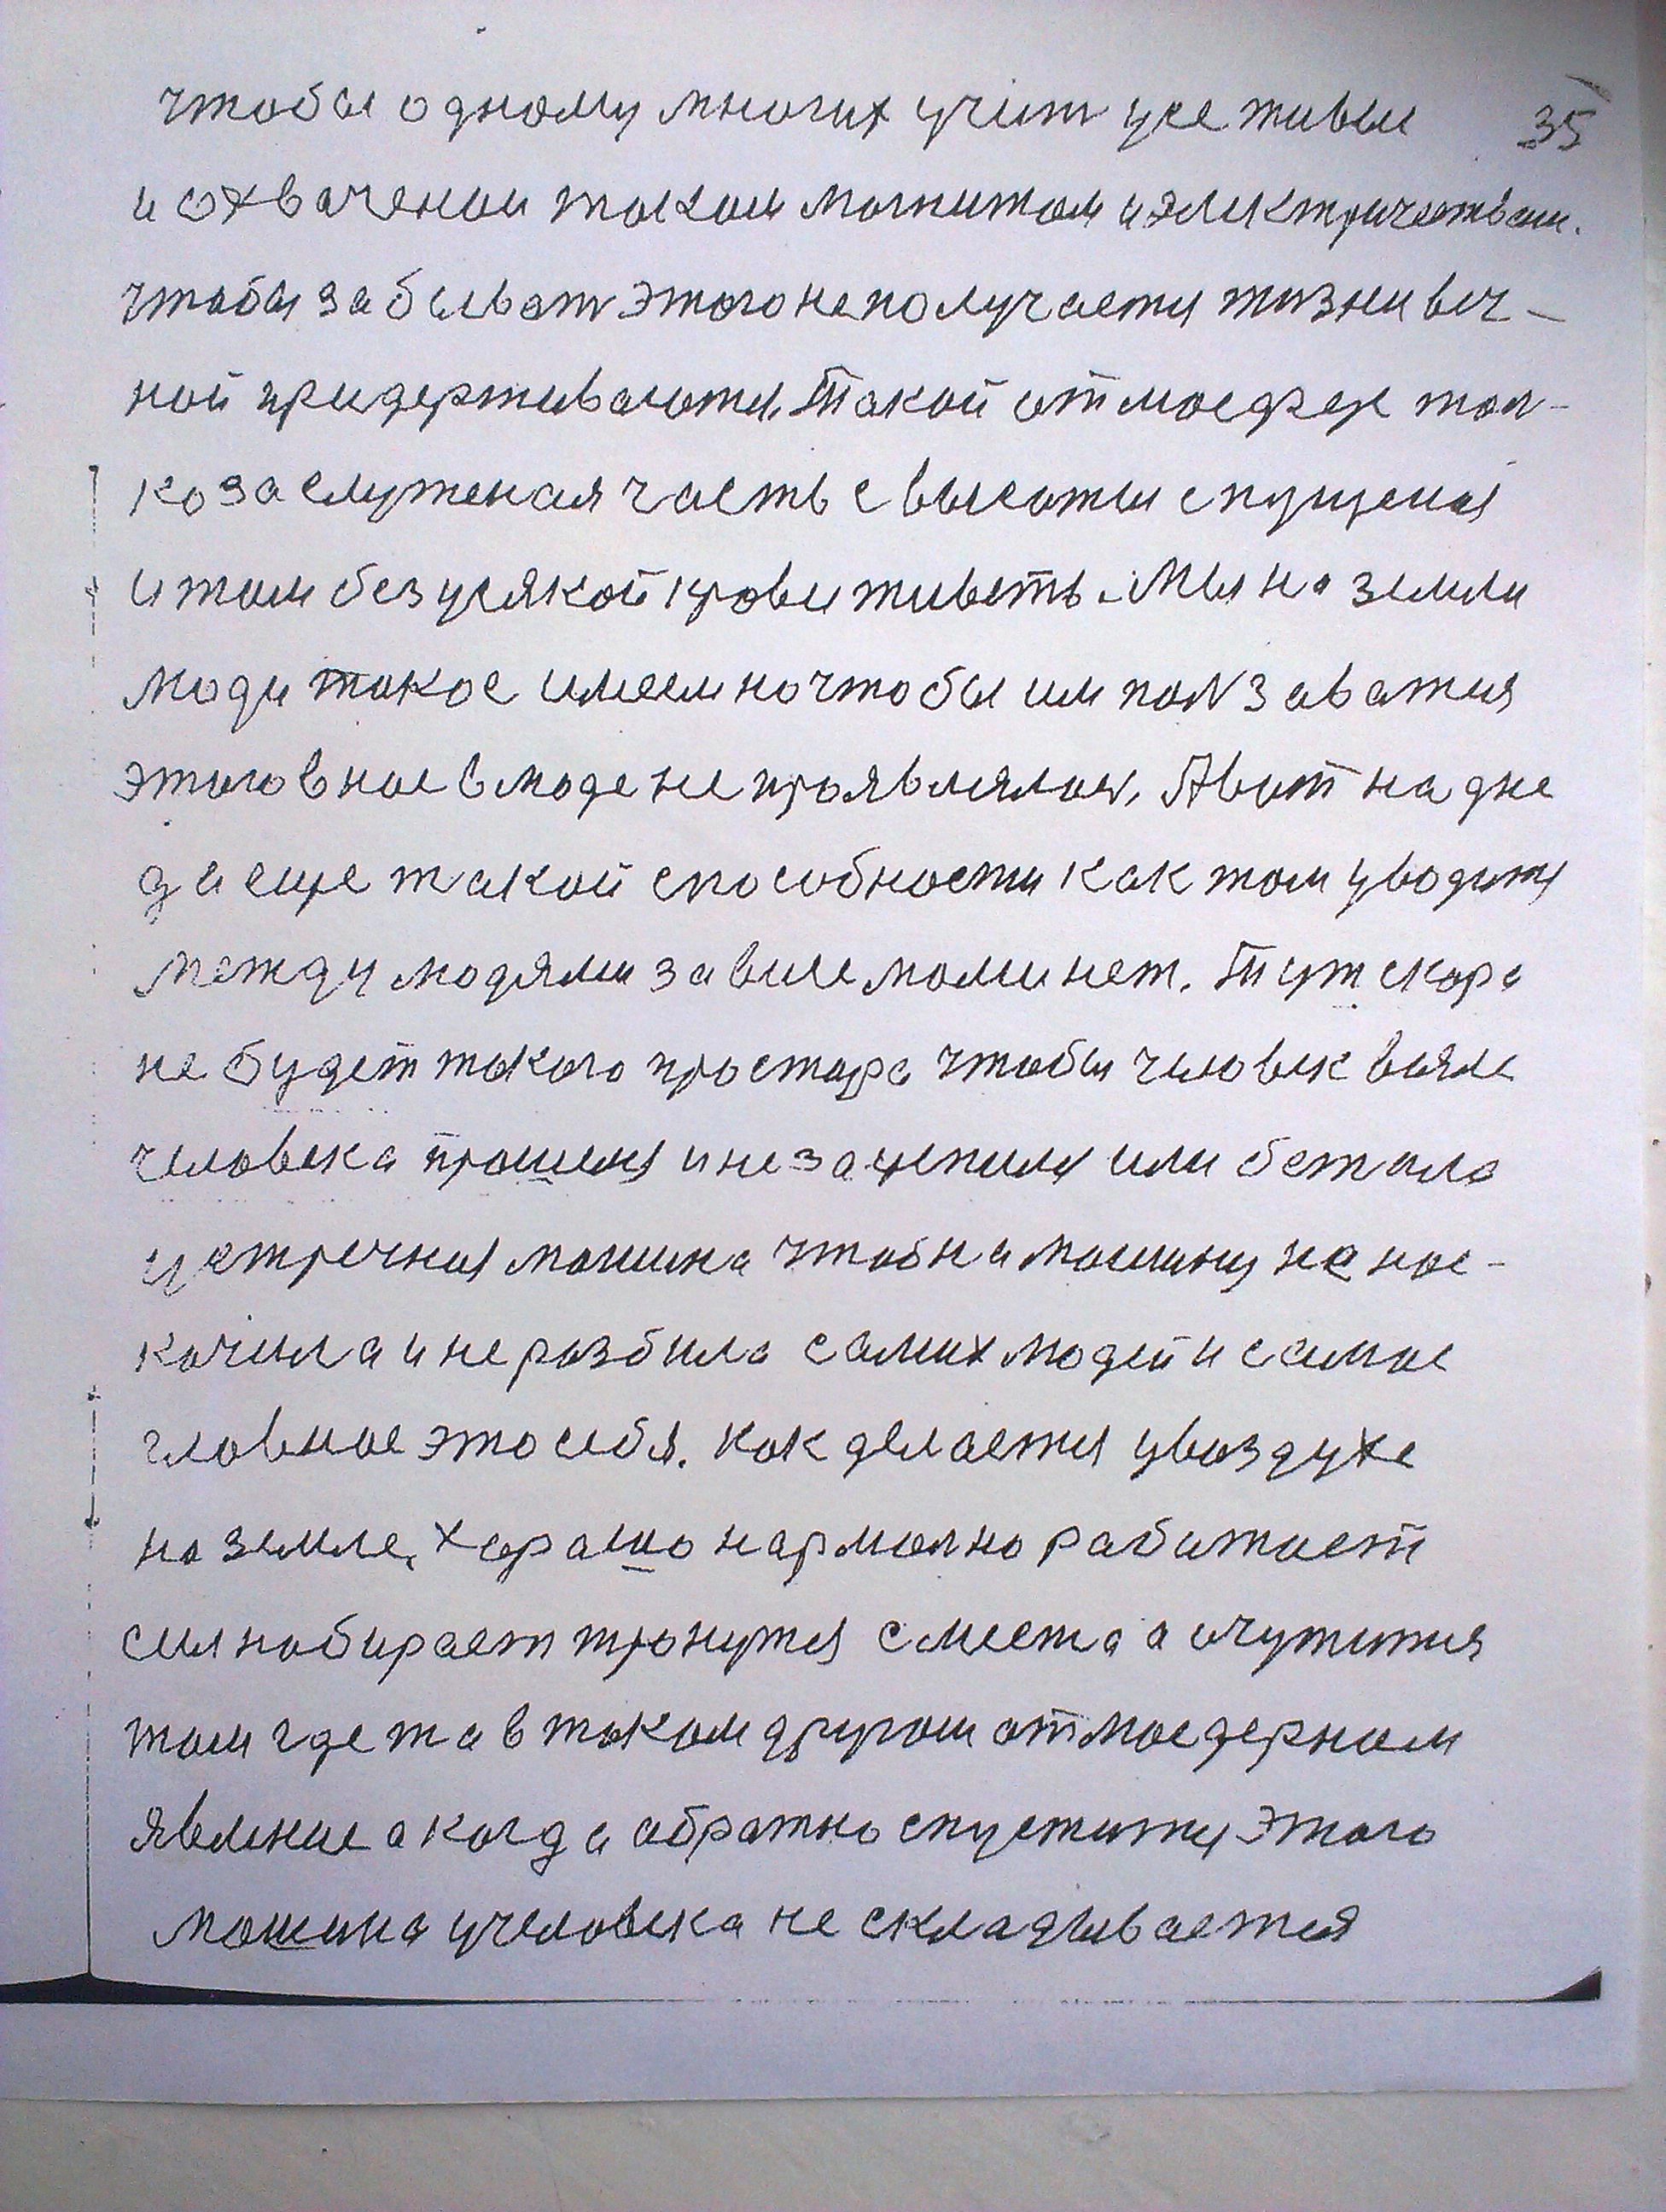 чтобы одному многих учит усе живые 35
и охваченаи током магнитом и электричеством.
чтобы забыват этого не получается жизни веч-
ной придерживаются. Такой отмосфере тол-
ко заслуженая часть с высоты спущеная
и там без усякой крови живеть. Мы на земли
люди такое имеем но чтобы им ползаватся
этого в нас в люде не проявлялось. А вот на дне
да еще такой способности как там уводится
между людями зависемоми нет. Тут скора
не будет такого простара чтобы человек возле
человека прошел и не зацепился или бежала
устречная машина чтоб на машину не нас-
качила и не разбила самих людей и самое
главное это себя. Как делается увоздухе
на земле. Харашо нармално работает
сил набирает тронутся с места а очутится
там где та в таком другом атмосферном
явление а когда абратно спустится этого
машина у человека не складывается